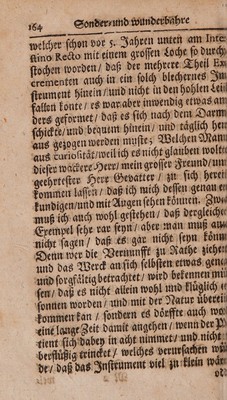 164 Sonder- und wunderbahre
welcher schon vor 5. Jahren unten am Inte
stino Recto mit einem grossen Loche so durch
stochen worden / daß der mehrere Theil Ex
crementen auch in ein solch blechernes In
strument hinein / und nicht in den hohlen Leib
fallen konte / es war aber inwendig etwas an
ders geformet / daß es sich nach dem Darm
schickte / und bequem hinein / und täglich her
aus gezogen werden muste; Welchen Mann
aus curiosität / weil ich es nicht glauben wolte
dieser wackere Herr / mein grosser Freund / und
geehrtester Herr Gevatter / zu sich herein
kommen lassen / daß ich mich dessen genau er
kundigen / und mit Augen sehen können. Zwar
muß ich auch wohl gestehen / daß dergleichen
Exempel sehr rar seyn / aber man muß auch
nicht sagen / daß es gar nicht seyn könne
Denn wer die Vernunfft zu Rathe ziehet
und das Werck an sich selbsten etwas genau
und sorgfältig betrachtet / wird bekennen müs
sen / daß es nicht allein wohl und klüglich er
sonnen worden / und mit der Natur überein
kommen kan / sondern es dörffte auch wohl
eine lange Zeit damit angehen / wenn der Pa
tient sich dabey in acht nimmet / und nicht
berflüßig trincket / welches verursachen wür
de / daß das Instrument viel zu klein wäre